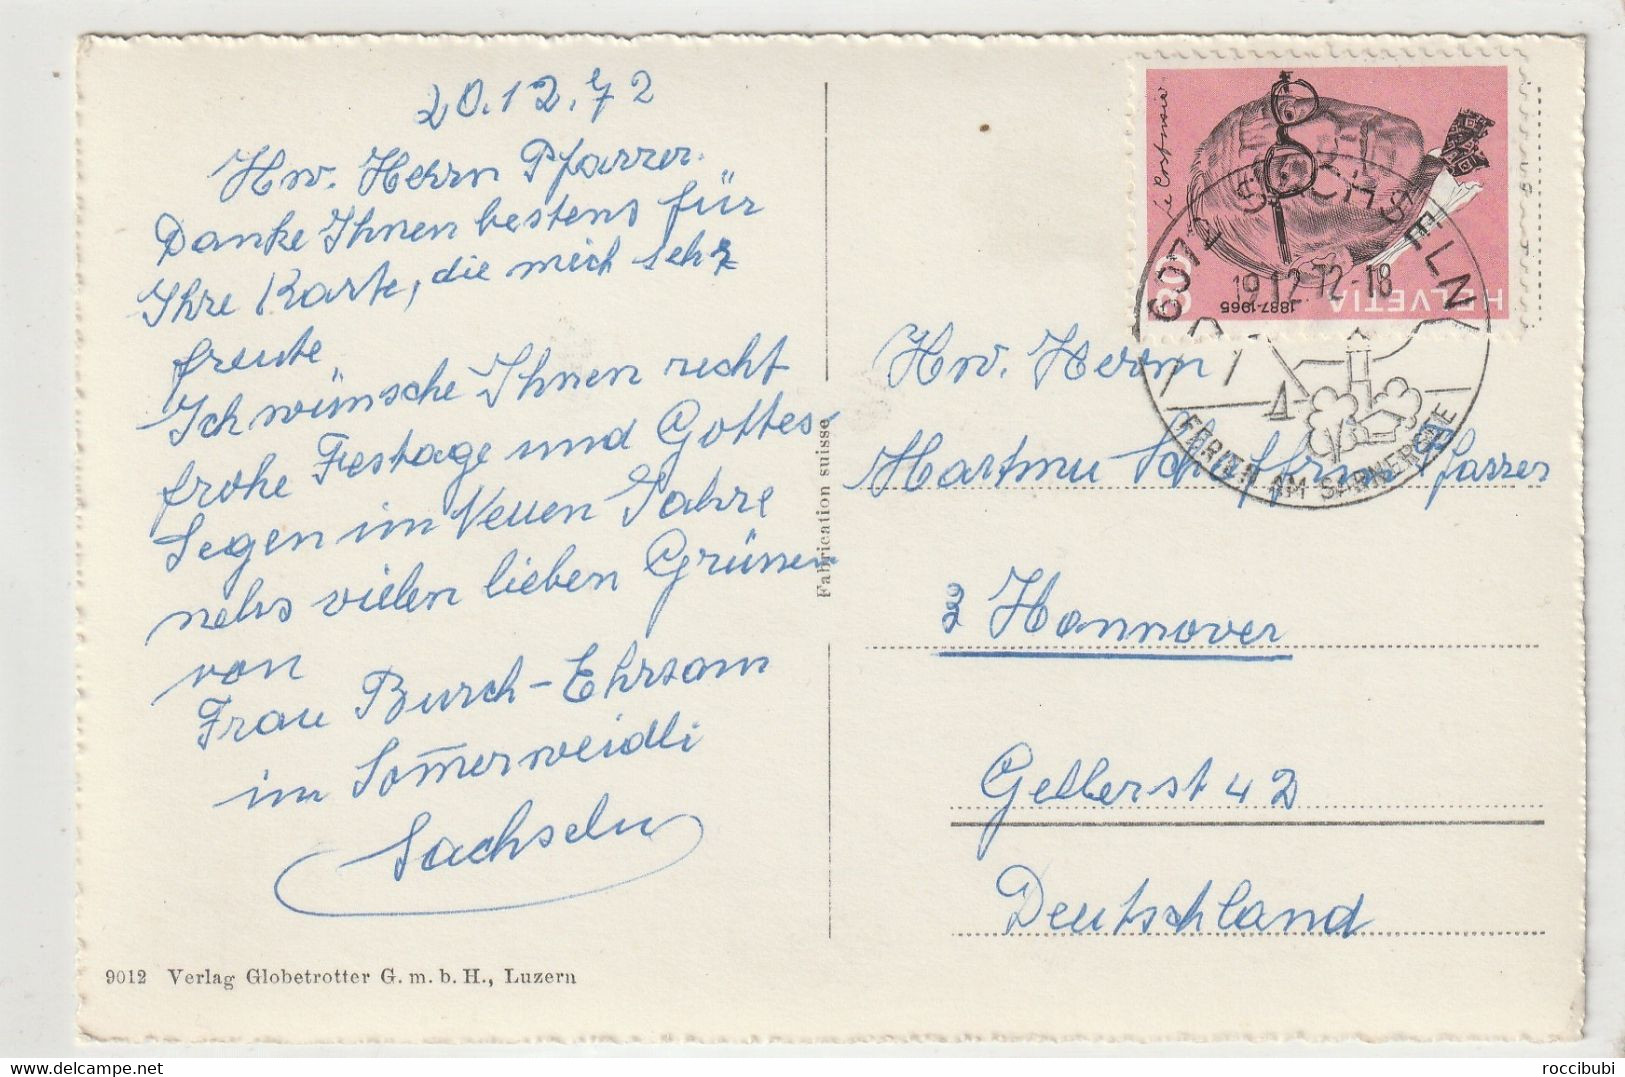 20.12.72
Hw. Herrn Pfarrer.
Danke Ihnen bestens für
Ihre Karte, die mich sehr
freute
Ich wünsche Ihnen recht
frohe Festage und Gottes
Segen im Neuen Jahre
nebs vielen lieben Grüssen
von
Frau Burch-Ehrsam
im Som̄erweidli
Sachseln
9012 Verlag Globetrotter G. m. b. H., Luzern
Fabrication suisse
Le Corbusier
1887-1965
30 HELVETIA
6072 SACHSELN
19.12.72-18
FERIEN AM SARNERSEE
Hw. Herrn
Pfarrer
3 Hannover
Gellerst 42
Deutschland
roccibubi